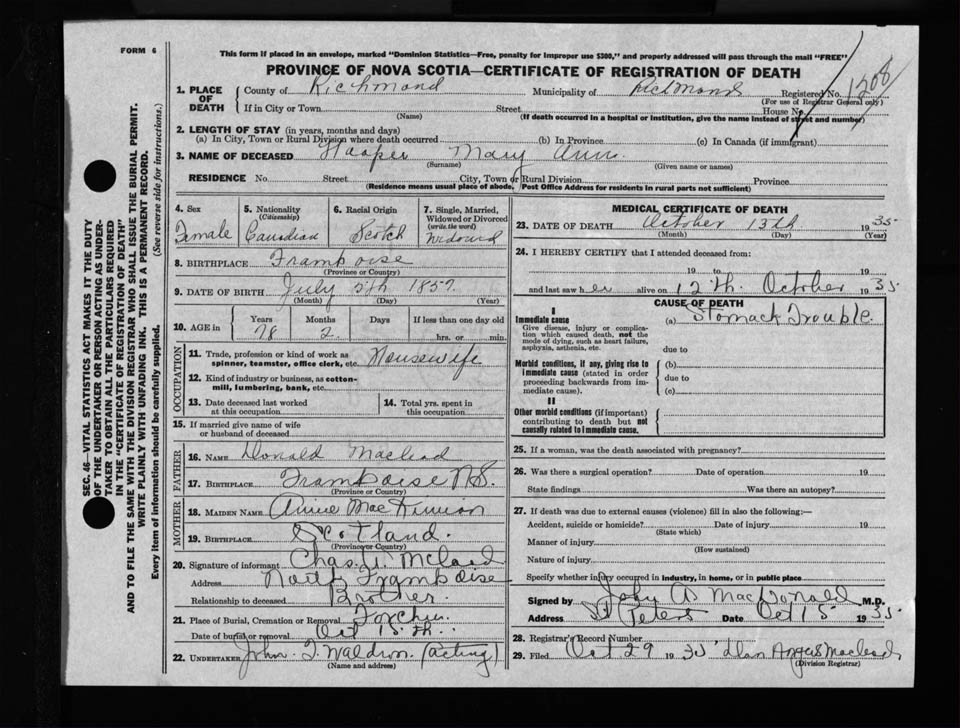 FORM 6
This form if placed in an envelope, marked "Dominion Statistics—Free, penalty for improper use $300," and properly addressed will pass through the mail "FREE"
PROVINCE OF NOVA SCOTIA—CERTIFICATE OF REGISTRATION OF DEATH
1. PLACE OF DEATH
County of Richmond Municipality of Richmond Registered No. 1208
(For use of Registrar General only)
If in City or Town Street House No.
(Name) (If death occurred in a hospital or institution, give the name instead of street and number)
2. LENGTH OF STAY (in years, months and days)
(a) In City, Town or Rural Division where death occurred (b) In Province (c) In Canada (if immigrant)
3. NAME OF DECEASED Hooper Mary Ann.
(Surname) (Given name or names)
RESIDENCE No. Street City, Town or Rural Division Province
(Residence means usual place of abode. Post Office Address for residents in rural parts not sufficient)
4. Sex Female
5. Nationality (Citizenship) Canadian
6. Racial Origin Scotch
7. Single, Married, Widowed or Divorced (write the word) Widowed
8. BIRTHPLACE Framboise
(Province or Country)
9. DATE OF BIRTH July 5th 1857.
(Month) (Day) (Year)
10. AGE in Years Months Days If less than one day old
78 2 hrs. or min.
OCCUPATION
11. Trade, profession or kind of work as spinner, teamster, office clerk, etc. Housewife
12. Kind of industry or business, as cotton-mill, lumbering, bank, etc.
13. Date deceased last worked at this occupation
14. Total yrs. spent in this occupation
15. If married give name of wife or husband of deceased
FATHER
16. NAME Donald Macleod
17. BIRTHPLACE Framboise N.S.
(Province or Country)
MOTHER
18. MAIDEN NAME Annie MacKinnon
19. BIRTHPLACE Scotland.
(Province or Country)
20. Signature of informant Chas. W. McLeod
Address North Framboise
Relationship to deceased Brother.
21. Place of Burial, Cremation or Removal Forchu.
Date of burial or removal Oct 15th.
22. UNDERTAKER John T. Waldron. (acting)
(Name and address)
MEDICAL CERTIFICATE OF DEATH
23. DATE OF DEATH October 13th 1935
(Month) (Day) (Year)
24. I HEREBY CERTIFY that I attended deceased from:
19 to 19
and last saw her alive on 12th October 1935
CAUSE OF DEATH
I
Immediate cause (a) Stomack Trouble.
Give disease, injury or complication which caused death, not the mode of dying, such as heart failure, asphyxia, asthenia, etc.
due to
Morbid conditions, if any, giving rise to immediate cause (stated in order proceeding backwards from immediate cause).
(b)
due to
(c)
II
Other morbid conditions (if important) contributing to death but not causally related to immediate cause.
25. If a woman, was the death associated with pregnancy?
26. Was there a surgical operation? Date of operation 19
State findings Was there an autopsy?
27. If death was due to external causes (violence) fill in also the following:—
Accident, suicide or homicide? Date of injury 19
(State which)
Manner of injury
(How sustained)
Nature of injury
Specify whether injury occurred in industry, in home, or in public place
Signed by John A MacDonald M.D.
Address St Peters Date Oct 15 1935
28. Registrar's Record Number
29. Filed Oct 29 1935 Dan Angus Macleod
(Division Registrar)
SEC. 46—VITAL STATISTICS ACT MAKES IT THE DUTY
OF THE UNDERTAKER OR PERSON ACTING AS UNDERTAKER
TO OBTAIN ALL THE PARTICULARS REQUIRED
IN THE "CERTIFICATE OF REGISTRATION OF DEATH"
AND TO FILE THE SAME WITH THE DIVISION REGISTRAR WHO SHALL ISSUE THE BURIAL PERMIT.
WRITE PLAINLY WITH UNFADING INK. THIS IS A PERMANENT RECORD.
Every item of information should be carefully supplied. (See reverse side for instructions.)